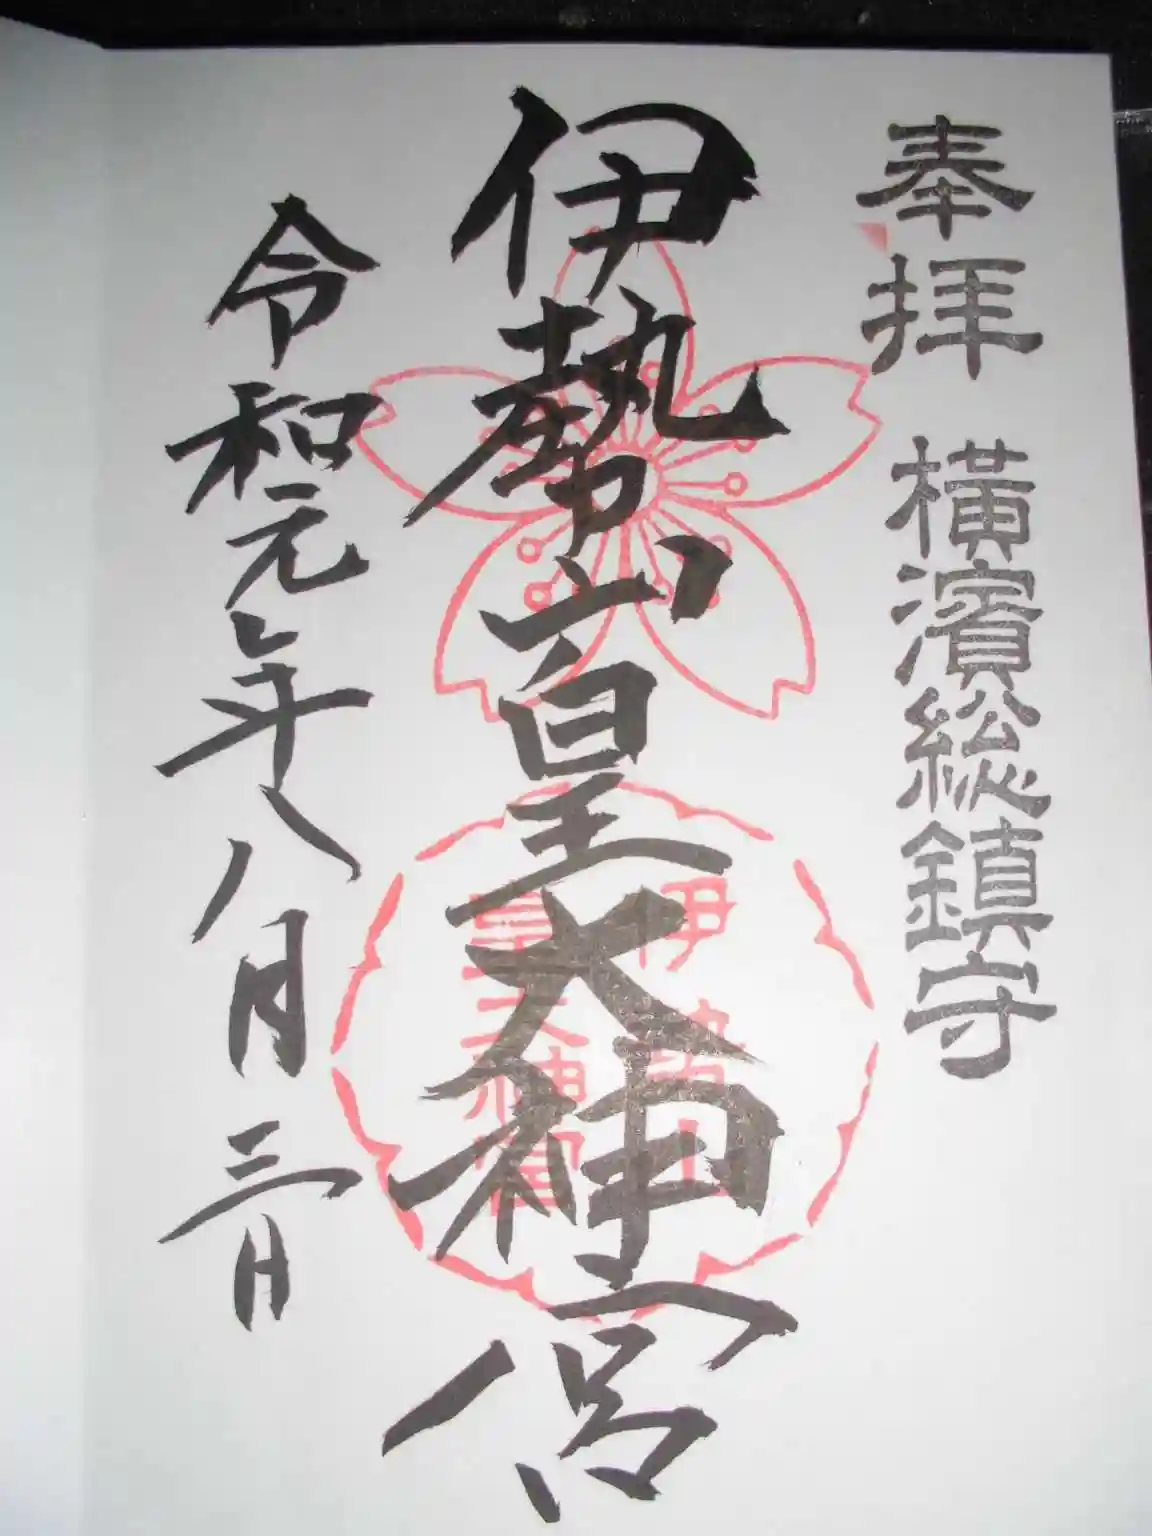 奉拝 横濱総鎮守
伊勢山皇大神宮
伊勢山
皇大神宮
令和元年八月三日